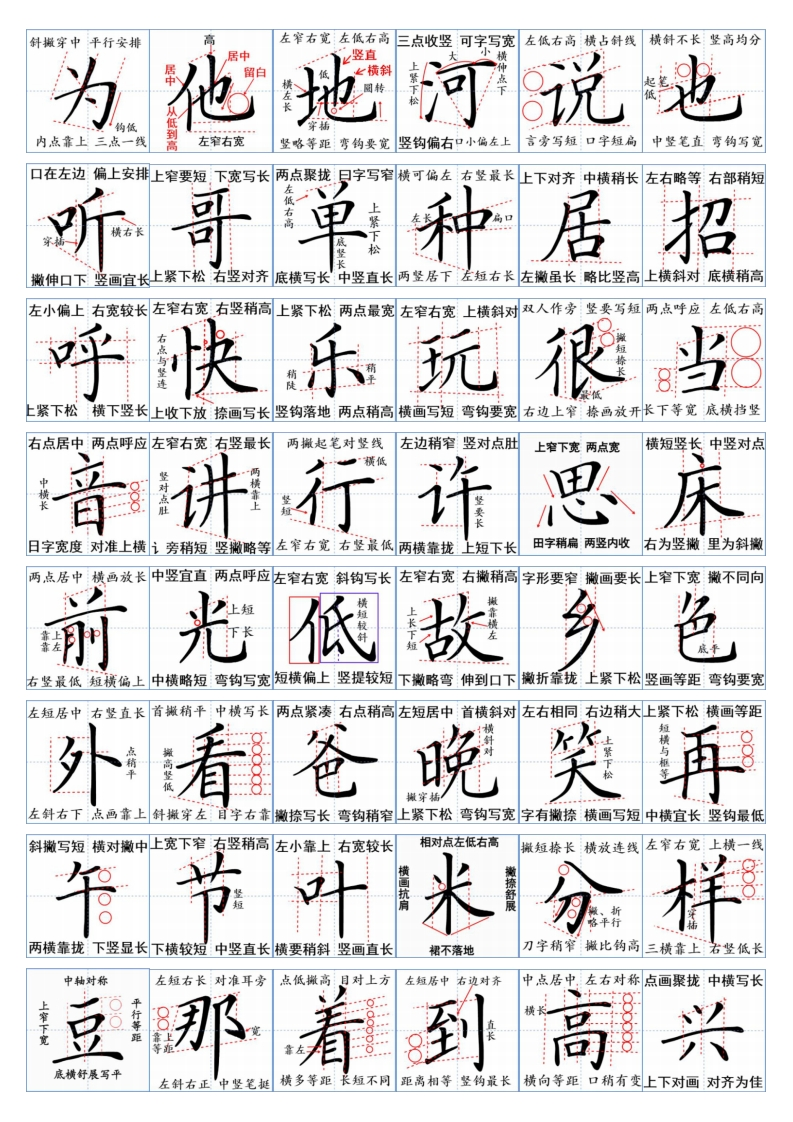 斜撇穿中 平行安排
为
钩低
内点靠上 三点一线
高
居中
居中
留白
他
从低到高
左窄右宽
左窄右宽 左低右高
竖直
低
横斜
横左长
圆转
地
穿插
竖略等距 弯钩要宽
三点收竖 可字写宽
大
小
上紧下松
横伸点下
河
竖钩偏右
口小偏左上
左低右高 横占斜线
说
言旁写短 口字短扁
横斜不长 竖高均分
起笔低
也
中竖笔直 弯钩写宽
口在左边 偏上安排
听
穿插
横右长
撇伸口下 竖画宜长
上窄要短 下宽写长
哥
上紧下松 右竖对齐
两点聚拢 曰字写窄
左低右高
单
上紧下松
底竖长
底横写长 中竖直长
横可偏左 右竖最长
左长
扁口
种
两竖居下 左短右长
上下对齐 中横稍长
居
左撇虽长 略比竖高
左右略等 右部稍短
招
上横斜对 底横稍高
左小偏上 右宽较长
呼
上紧下松 横下竖长
左窄右宽 右竖稍高
右点与竖连
快
上收下放 捺画写长
上紧下松 两点最宽
乐
稍陡
稍平
竖钩落地 两点稍高
左窄右宽 上横斜对
玩
横画写短 弯钩要宽
双人作旁 竖要写短
很
撇短捺长
最低
右边上窄 捺画放开
两点呼应 左低右高
当
长下等宽 底横挡竖
右点居中 两点呼应
中横长
音
日字宽度 对准上横
左窄右宽 右竖最长
竖对点肚
讲
两横靠上
讠旁稍短 竖撇略等
两撇起笔对竖线
横低
行
竖短
左窄右宽 右竖最低
左边稍窄 竖对点肚
许
竖要长
两横靠拢 上短下长
上窄下宽 两点宽
思
田字稍扁 两竖内收
横短竖长 中竖对点
床
右为竖撇 里为斜撇
两点居中 横画放长
前
靠上靠左
右竖最低 短横偏上
中竖宜直 两点呼应
光
上短下长
中横略短 弯钩写宽
左窄右宽 斜钩写长
低
横短较斜
短横偏上 竖提较短
左窄右宽 右撇稍高
上长下短
故
撇靠横左
下撇略弯 伸到口下
字形要窄 撇画要长
乡
撇折靠拢 上紧下松
上窄下宽 撇不同向
色
底平
竖画等距 弯钩要宽
左短居中 右竖直长
外
点稍平
左斜右下 点画靠上
首撇稍平 中横写长
撇高竖低
看
斜撇穿左 目字右靠
两点紧凑 右点稍高
爸
撇捺写长 弯钩稍窄
左短居中 首横斜对
横斜对
晚
撇穿插
上紧下松 弯钩写宽
左右相同 右边稍大
笑
上紧下松
字有撇捺 横画写短
上紧下松 横画等距
短横与框等
再
中横宜长 竖钩最低
斜撇写短 横对撇中
午
两横靠拢 下竖显长
上宽下窄 右竖稍高
节
竖短
下横较短 中竖直长
左小靠上 右宽较长
叶
横要稍斜 竖画直长
相对点左低右高
横画抗肩
米
撇捺舒展
裙不落地
撇短捺长 横放连线
分
撇、折略平行
刀字稍窄 撇比钩高
左窄右宽 上横一线
样
穿插
三横靠上 右竖低长
中轴对称
上窄下宽
豆
平行等距
底横舒展写平
左短右长 对准耳旁
那
靠上等距
宽
左斜右正 中竖笔挺
点低撇高 目对上方
着
靠左
横多等距 长短不同
左短居中 右边对齐
到
直长
距离相等 竖钩最长
中点居中 左右对称
横长
高
横向等距 口稍有变
点画聚拢 中横写长
兴
上下对画 对齐为佳